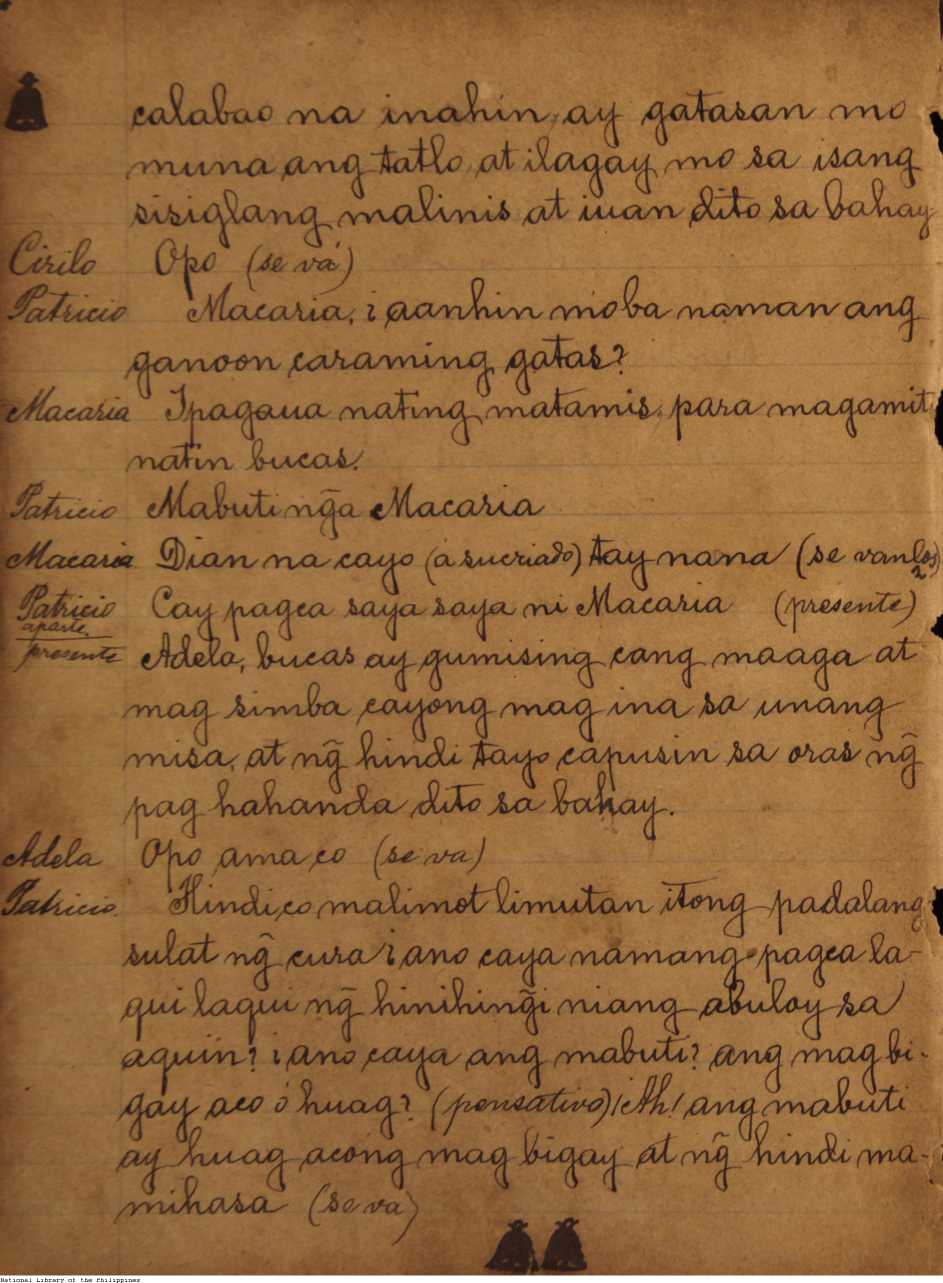 calabao na inahin, ay gatasan mo
muna ang tatlo, at ilagay mo sa isang
sisiglang malinis at iuan dito sa bahay
Cirilo Opo (se vá)
Patricio Macaria, ¿aanhin mo ba naman ang
ganoon caraming gatas?
Macaria Ipagaua nating matamis, para magamit
natin bucas.
Patricio Mabuti ng̃a Macaria
Macaria Dian na cayo (á su criado) tay nana (se van los 2)
Patricio aparte Cay pagca saya saya ni Macaria (presente)
presente Adela, bucas ay gumising cang maaga at
mag simba cayong mag ina sa unang
misa, at ng̃ hindi tayo capusin sa oras ng̃
pag hahanda dito sa bahay.
Adela Opo ama co (se va)
Patricio Hindi co malimot limutan itong padalang
sulat ng̃ cura ¿ano caya namang pagca la-
qui laqui ng̃ hinihing̃i niang abuloy sa
aquin? ¿ano caya ang mabuti? ang mag bi-
gay aco ó huag? (pensativo) ¡Ah! ang mabuti
ay huag acong mag bigay at ng̃ hindi ma-
mihasa (se va)
National Library of the Philippines